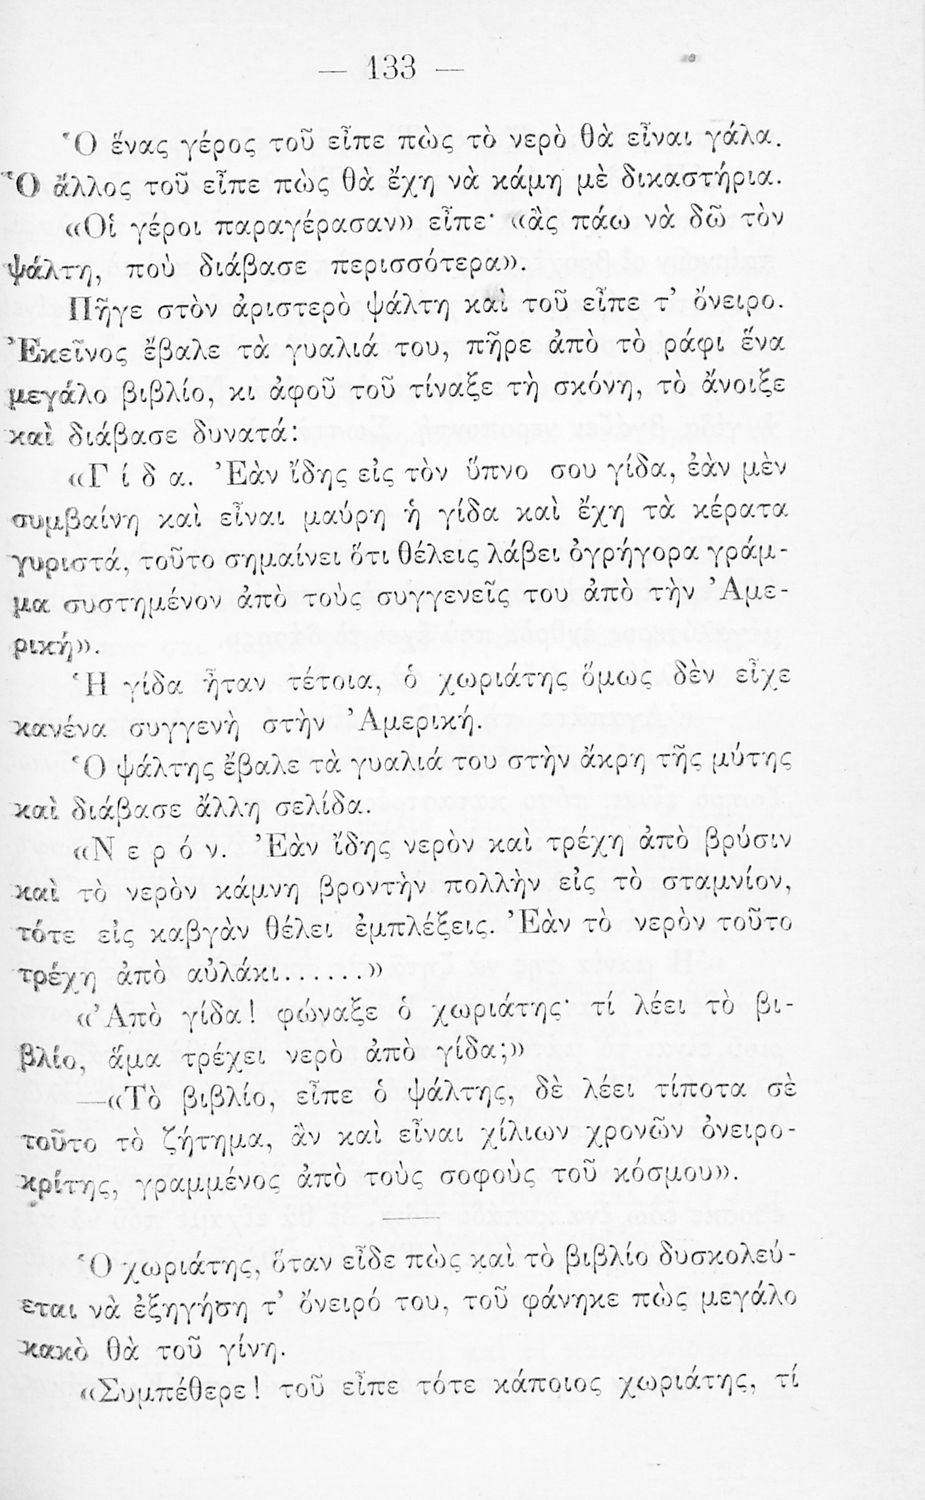 — 133 —
Ὁ ἕνας γέρος τοῦ εἶπε πὼς τὸ νερὸ θὰ εἶναι γάλα.
Ὁ ἄλλος τοῦ εἶπε πὼς θὰ ἔχῃ νὰ κάμῃ μὲ δικαστήρια.
«Οἱ γέροι παραγέρασαν» εἶπε· «ἂς πάω νὰ δῶ τὸν
ψάλτη, ποὺ διάβασε περισσότερα».
Πῆγε στὸν ἀριστερὸ ψάλτη καὶ τοῦ εἶπε τ’ ὄνειρο.
Ἐκεῖνος ἔβαλε τὰ γυαλιά του, πῆρε ἀπὸ τὸ ράφι ἕνα
μεγάλο βιβλίο, κι ἀφοῦ τοῦ τίναξε τὴ σκόνη, τὸ ἄνοιξε
καὶ διάβασε δυνατά:
«Γ ί δ α. Ἐὰν ἴδῃς εἰς τὸν ὕπνο σου γίδα, ἐὰν μὲν
συμβαίνῃ καὶ εἶναι μαύρη ἡ γίδα καὶ ἔχῃ τὰ κέρατα
γυριστά, τοῦτο σημαίνει ὅτι θέλεις λάβει ὀγρήγορα γράμ-
μα συστημένον ἀπὸ τοὺς συγγενεῖς του ἀπὸ τὴν Ἀμε-
ρική».
Ἡ γίδα ἦταν τέτοια, ὁ χωριάτης ὅμως δὲν εἶχε
κανένα συγγενῆ στὴν Ἀμερική.
Ὁ ψάλτης ἔβαλε τὰ γυαλιά του στὴν ἄκρη τῆς μύτης
καὶ διάβασε ἄλλη σελίδα.
«Ν ε ρ ό ν. Ἐὰν ἴδῃς νερὸν καὶ τρέχῃ ἀπὸ βρύσιν
καὶ τὸ νερὸν κάμνῃ βροντὴν πολλὴν εἰς τὸ σταμνίον,
τότε εἰς καβγὰν θέλει ἐμπλέξεις. Ἐὰν τὸ νερὸν τοῦτο
τρέχῃ ἀπὸ αὐλάκι......»
«Ἀπὸ γίδα! φώναξε ὁ χωριάτης· τί λέει τὸ βι-
βλίο, ἅμα τρέχει νερὸ ἀπὸ γίδα;»
—«Τὸ βιβλίο, εἶπε ὁ ψάλτης, δὲ λέει τίποτα σὲ
τοῦτο τὸ ζήτημα, ἂν καὶ εἶναι χίλιων χρονῶν ὀνειρο-
κρίτης, γραμμένος ἀπὸ τοὺς σοφοὺς τοῦ κόσμου».
Ὁ χωριάτης, ὅταν εἶδε πὼς καὶ τὸ βιβλίο δυσκολεύ-
εται νὰ ἐξηγήσῃ τ’ ὄνειρό του, τοῦ φάνηκε πὼς μεγάλο
κακὸ θὰ τοῦ γίνῃ.
«Συμπέθερε! τοῦ εἶπε τότε κάποιος χωριάτης, τί